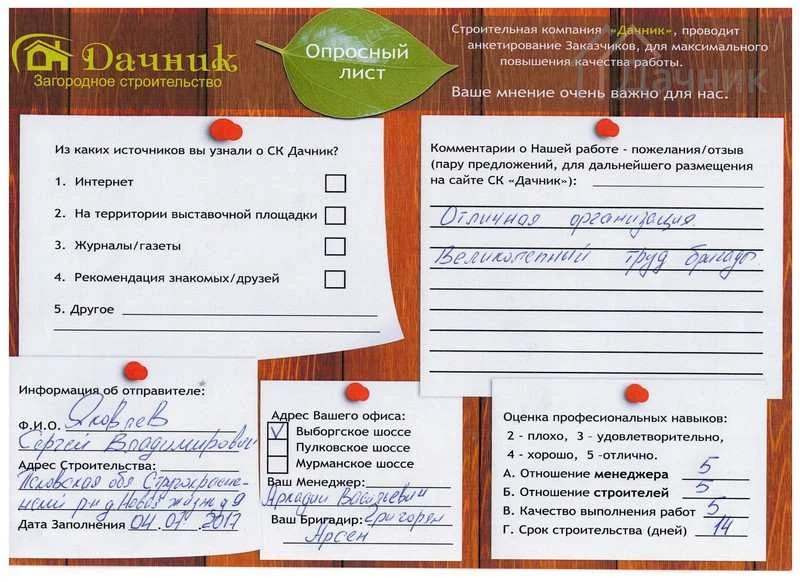 Дачник
Загородное строительство
Опросный
лист
Строительная компания «Дачник», проводит
анкетирование Заказчиков, для максимального
повышения качества работы.
Ваше мнение очень важно для нас.
Дачник
Из каких источников вы узнали о СК Дачник?
1. Интернет
2. На территории выставочной площадки
3. Журналы/газеты
4. Рекомендация знакомых/друзей
5. Другое
Комментарии о Нашей работе - пожелания/отзыв
(пару предложений, для дальнейшего размещения
на сайте СК «Дачник»):
Отличная организация.
Великолепный труд бригады.
Информация об отправителе:
Ф.И.О. Яковлев
Сергей Владимирович
Адрес Строительства:
Псковская обл
р-н д Новая жизнь д 9
Дата Заполнения 04.07.2017
Адрес Вашего офиса:
V Выборгское шоссе
Пулковское шоссе
Мурманское шоссе
Ваш Менеджер:
Аркадий Васильевич
Ваш Бригадир: Григорян
Арсен
Оценка професиональных навыков:
2 - плохо, 3 - удовлетворительно,
4 - хорошо, 5 -отлично.
А. Отношение менеджера 5
Б. Отношение строителей 5
В. Качество выполнения работ 5
Г. Срок строительства (дней) 14